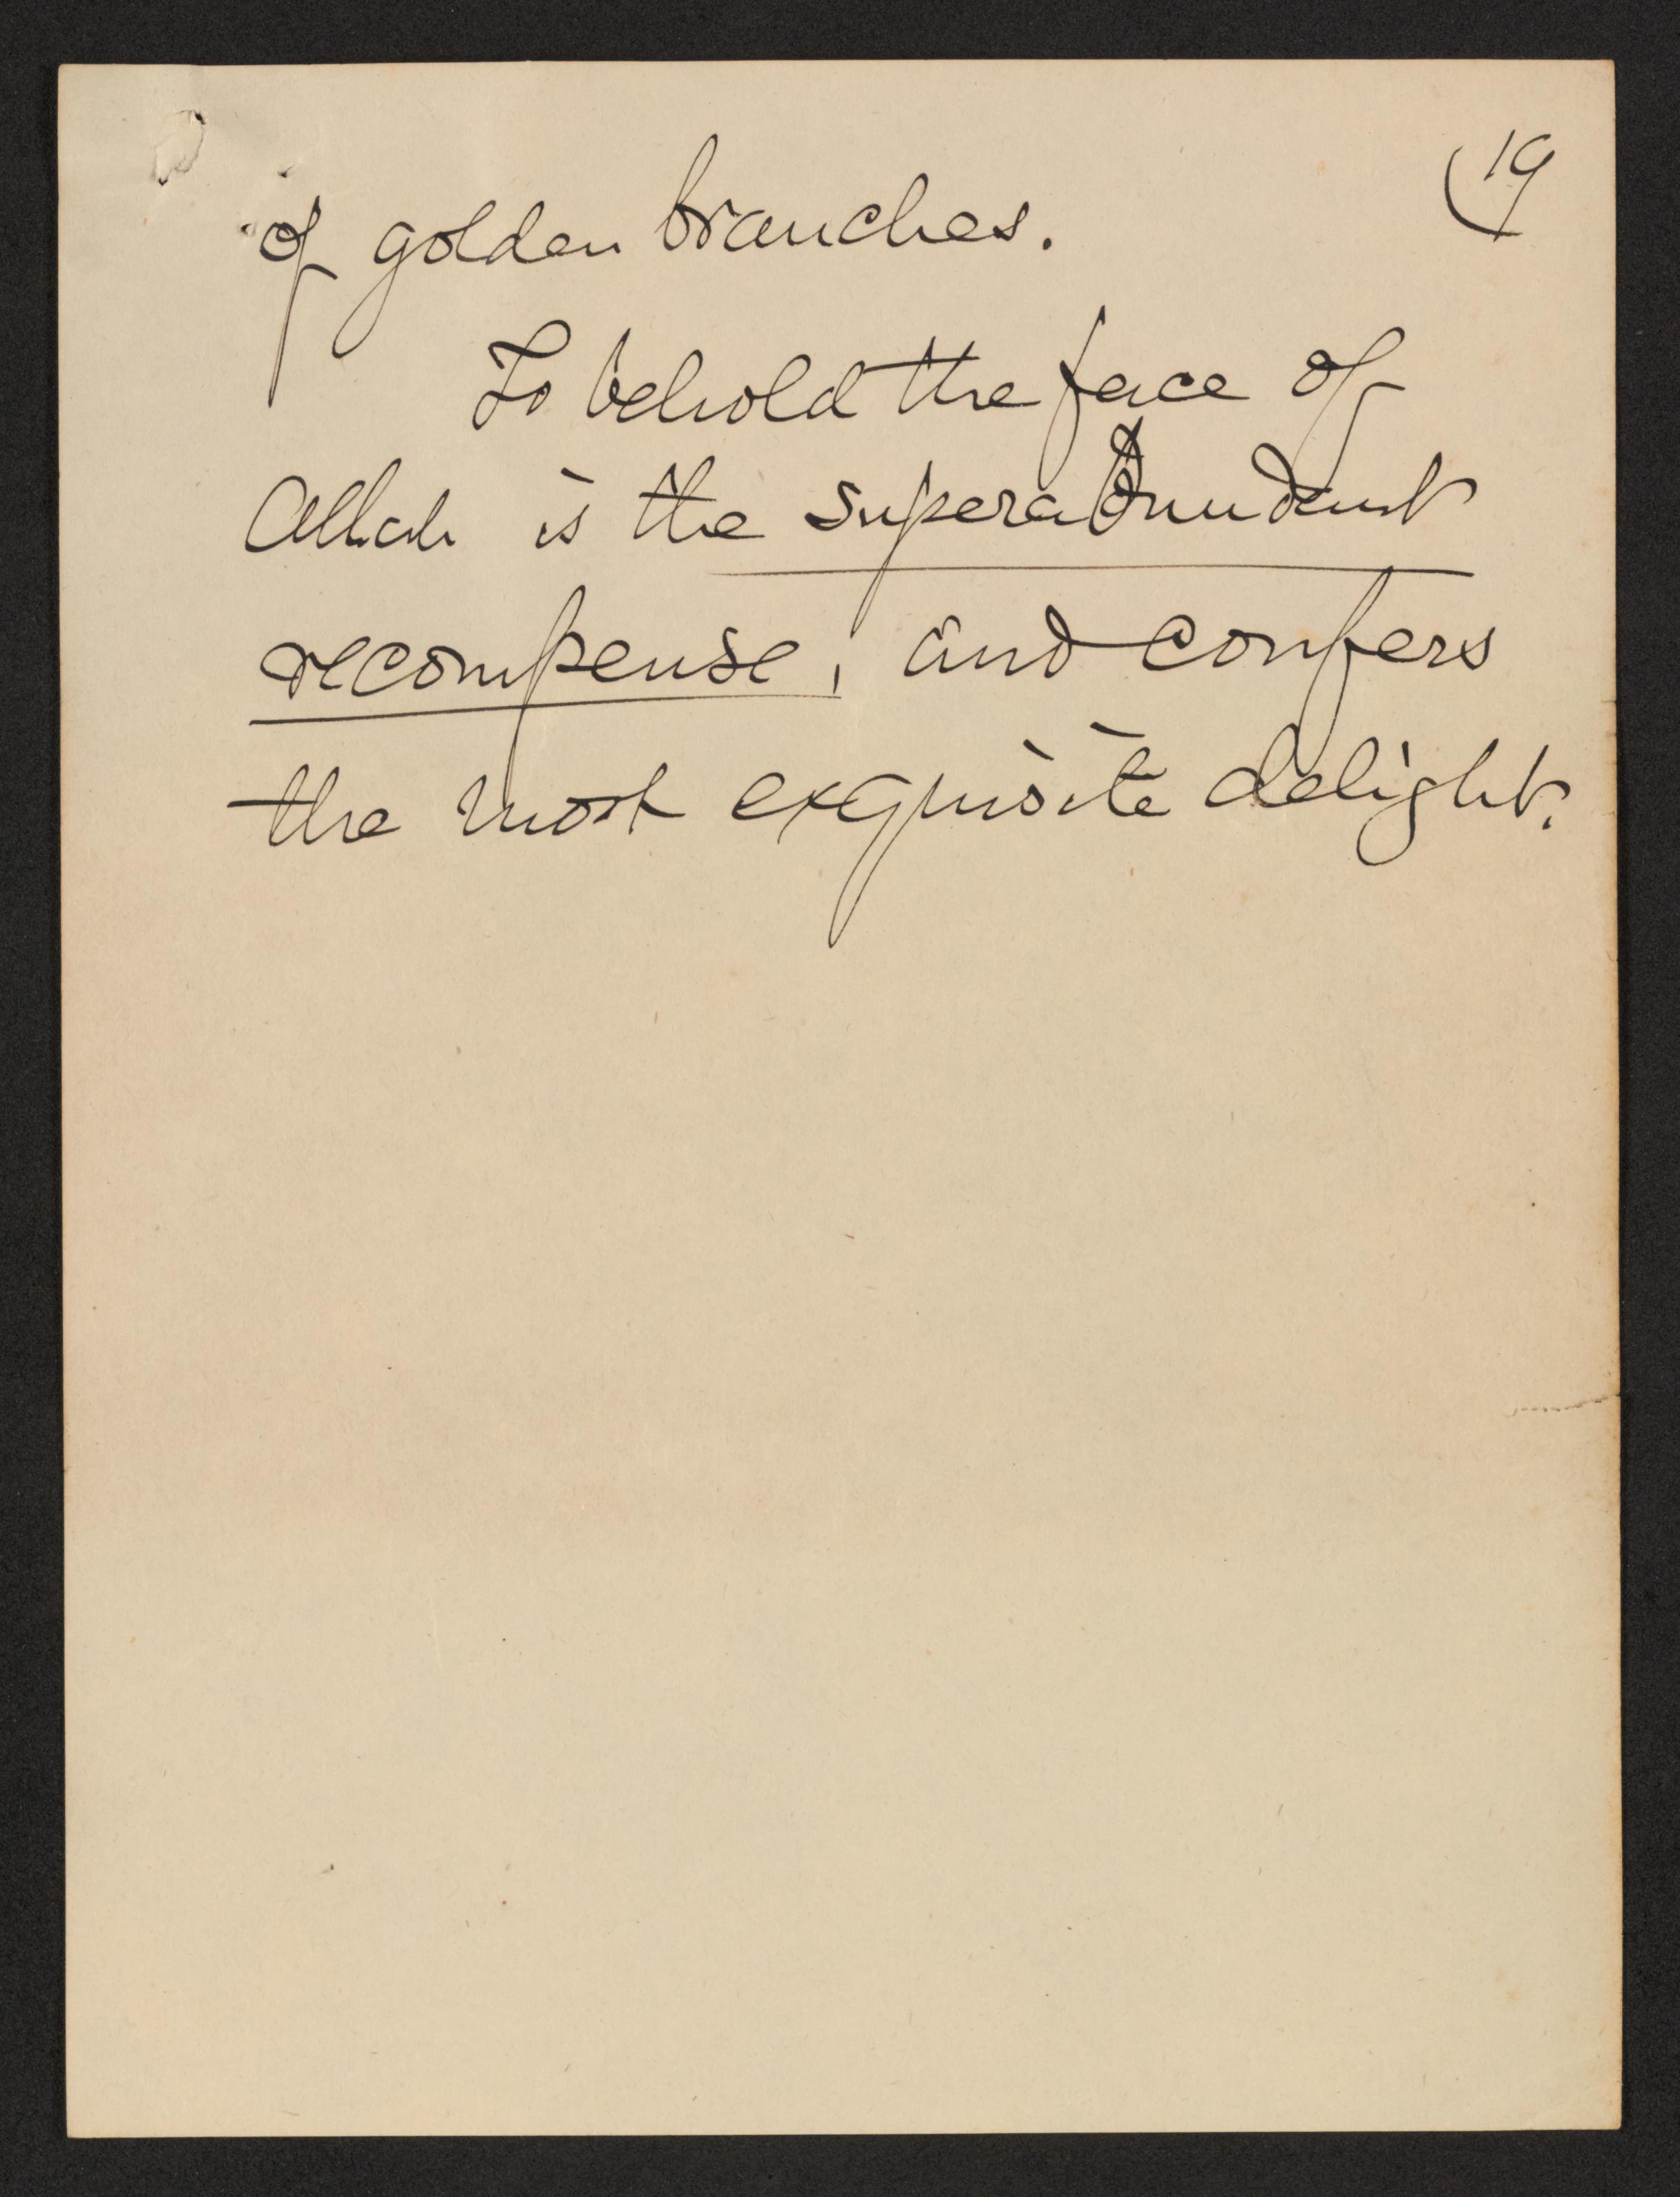 19
of golden branches.
To behold the face of
Allah is the superabundant
recompense, and confers
the most exquisite delight.